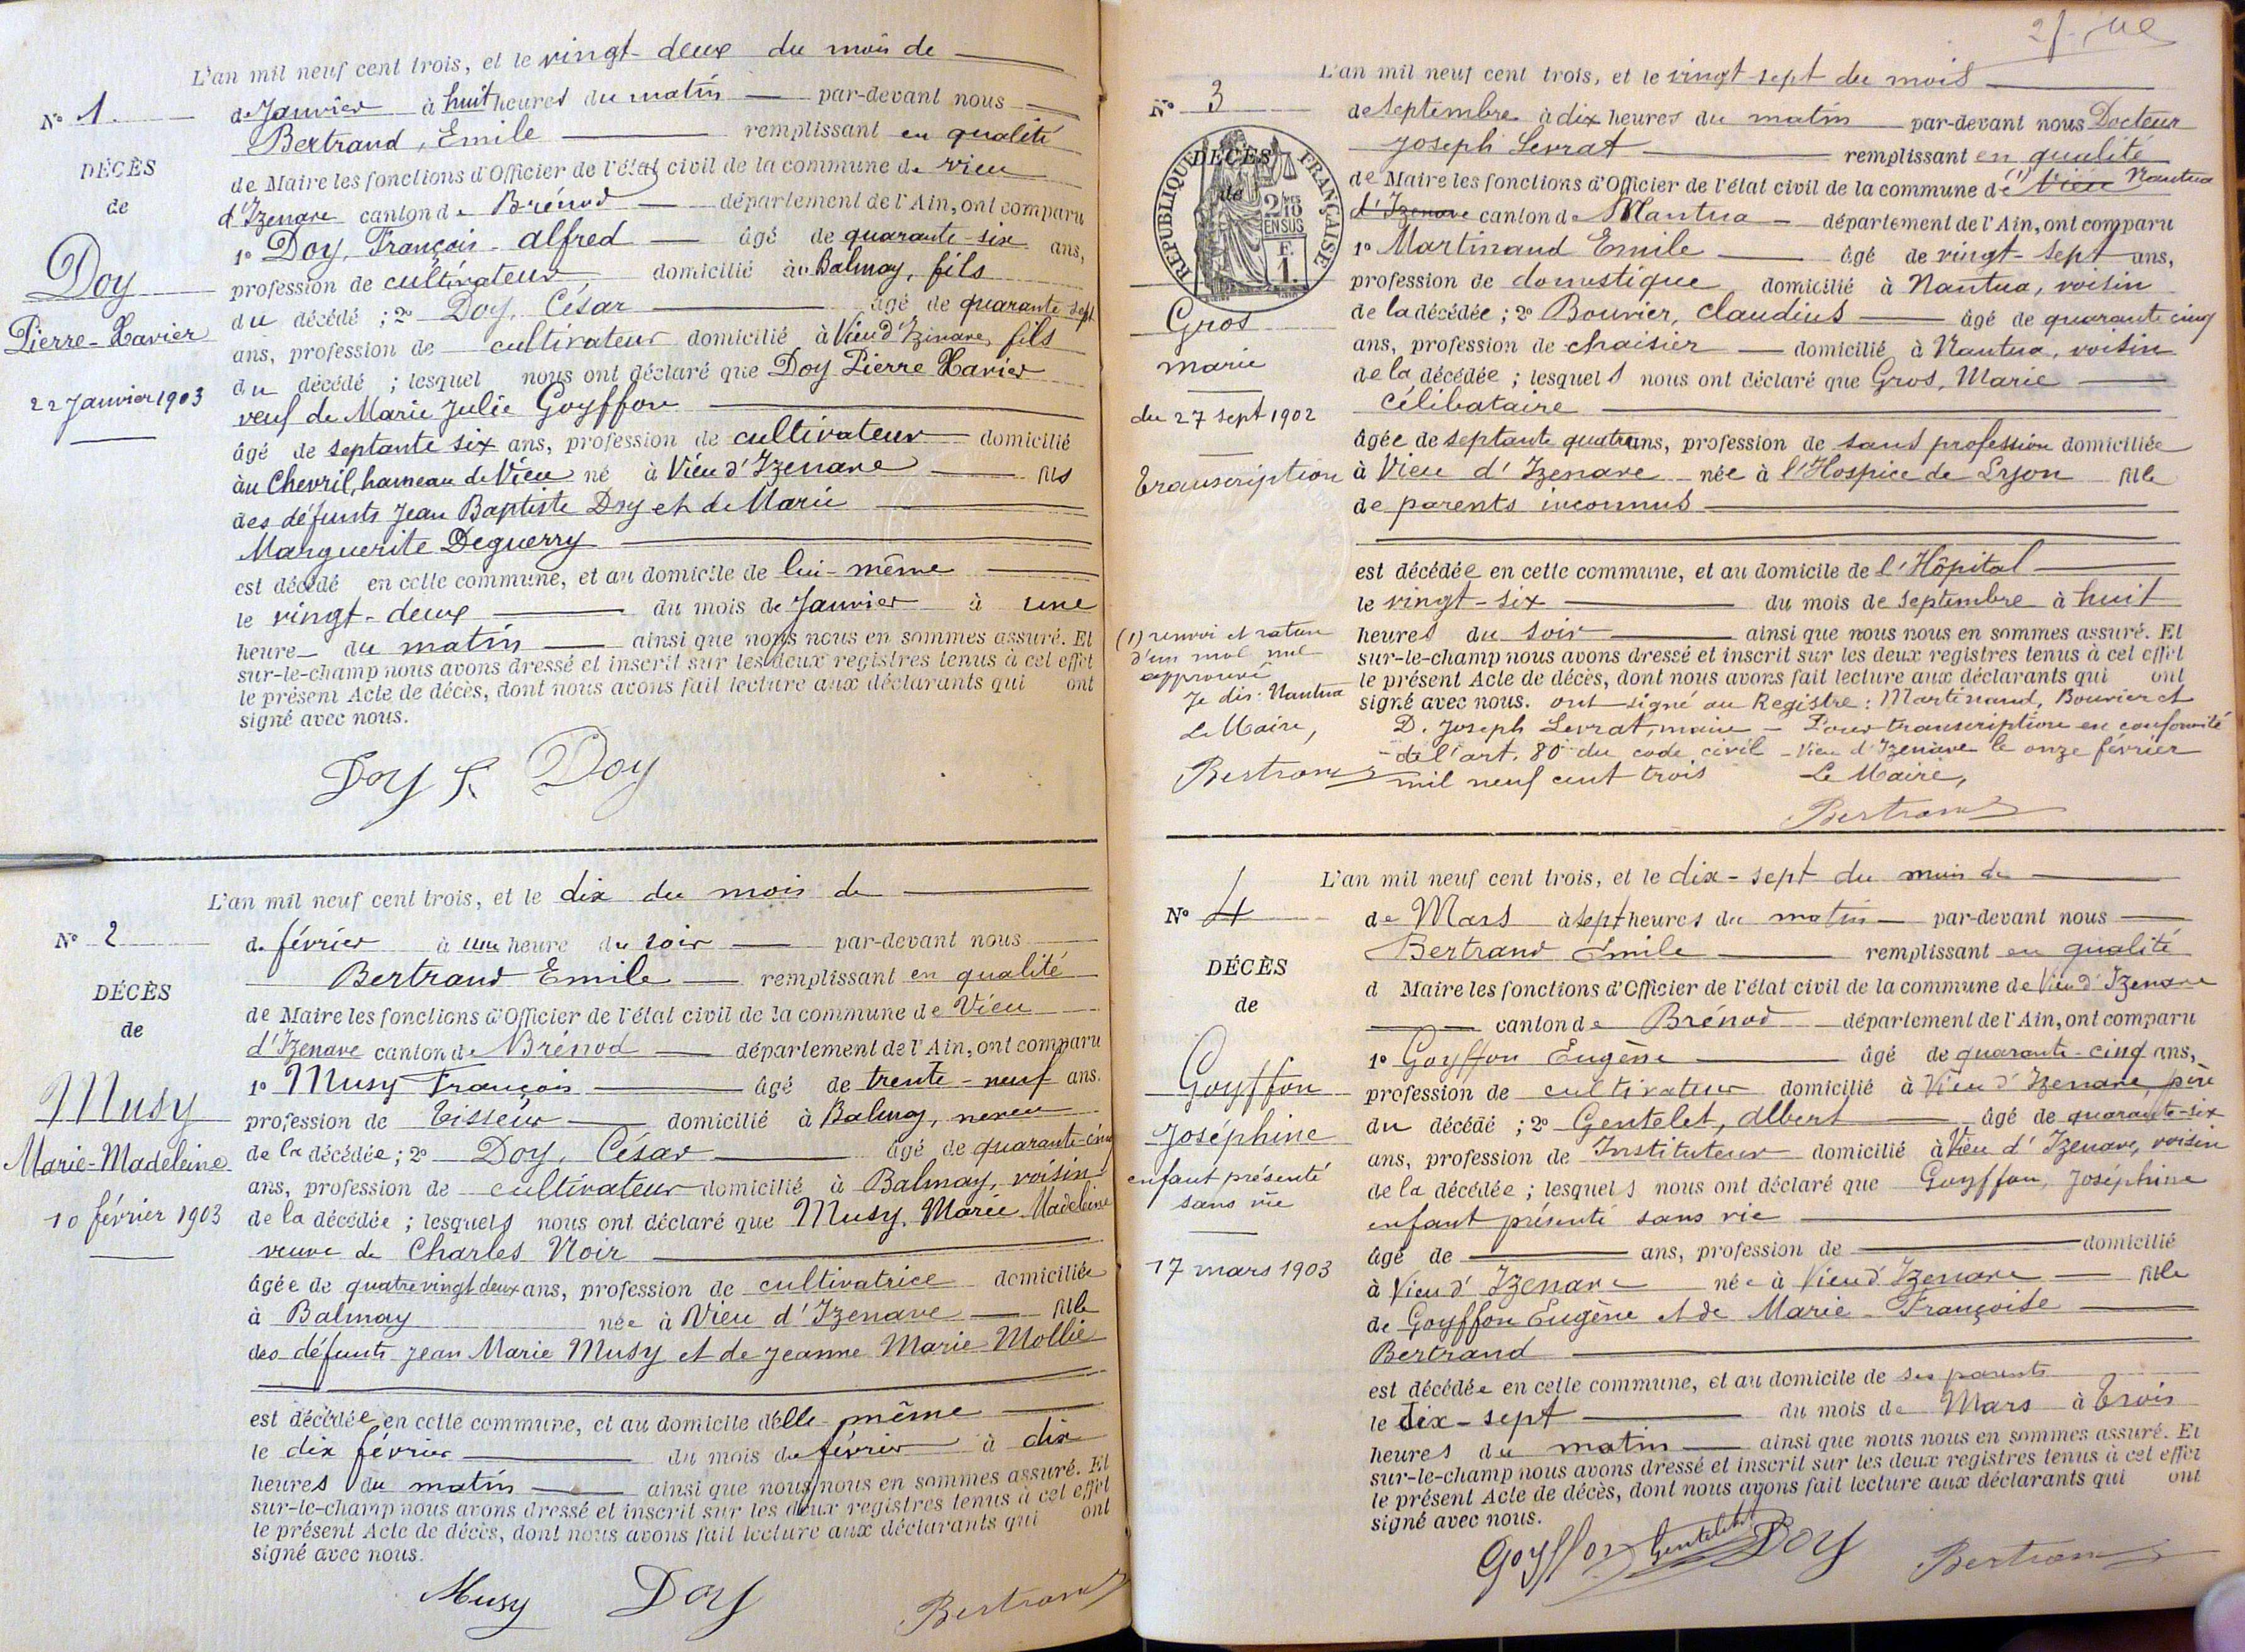 L'an mil neuf cent trois, et le vingt-deux du mois de
N° 1.
de Janvier à huit heures du matin par-devant nous
Bertrand, Emile remplissant en qualité
DÉCÈS
de Maire les fonctions d'Officier de l'état civil de la commune de Vieu
de
d'Izenave canton de Brénod département de l'Ain, ont comparu
1° Doy, François-Alfred âgé de quarante-six ans,
Doy
profession de cultivateur domicilié à Balmay, fils
du décédé ; 2° Doy, César âgé de quarante sept
Pierre-Xavier
ans, profession de cultivateur domicilié à Vieu d'Izenave, fils
du décédé ; lesquel nous ont déclaré que Doy Pierre Xavier
22 Janvier 1903
veuf de Marie Julie Goyffon
âgé de septante six ans, profession de cultivateur domicilié
au Chevril, hameau de Vieu né à Vieu d'Izenave fils
des défunts Jean Baptiste Doy et de Marie
Marguerite Deguerry
est décédé en cette commune, et au domicile de lui-même
le vingt-deux du mois de Janvier à une
heure du matin ainsi que nous nous en sommes assuré. Et
sur-le-champ nous avons dressé et inscrit sur les deux registres tenus à cet effet
le présent Acte de décès, dont nous avons fait lecture aux déclarants qui ont
signé avec nous.
Doy F. Doy
L'an mil neuf cent trois, et le dix du mois de
N° 2
de février à une heure du soir par-devant nous
Bertrand Emile remplissant en qualité
DÉCÈS
de Maire les fonctions d'Officier de l'état civil de la commune de Vieu
de
d'Izenave canton de Brénod département de l'Ain, ont comparu
1° Musy François âgé de trente-neuf ans.
Musy
profession de tisseur domicilié à Balmay, neveu
Marie-Madeleine
de la décédée ; 2° Doy, César âgé de quarante-cinq
ans, profession de cultivateur domicilié à Balmay, voisin
10 février 1903
de la décédée ; lesquels nous ont déclaré que Musy, Marie Madeleine
veuve de Charles Noir
âgée de quatre vingt deux ans, profession de cultivatrice domiciliée
à Balmay née à Vieu d'Izenave fille
des défunts Jean Marie Musy et de Jeanne Marie Mollie
est décédée en cette commune, et au domicile d'elle-même
le dix février du mois de février à dix
heures du matin ainsi que nous nous en sommes assuré. Et
sur-le-champ nous avons dressé et inscrit sur les deux registres tenus à cet effet
le présent Acte de décès, dont nous avons fait lecture aux déclarants qui ont
signé avec nous.
Musy Doy Bertrand
L'an mil neuf cent trois, et le vingt-sept du mois
N° 3
de septembre à dix heures du matin par-devant nous Docteur
Joseph Levrat remplissant en qualité
DÉCÈS
de
RÉPUBLIQUE FRANÇAISE
2 10 EN SUS
F. 1.
de Maire les fonctions d'Officier de l'état civil de la commune de (1) Vieu Nantua
d'Izenave canton de Nantua département de l'Ain, ont comparu
1° Martinand Emile âgé de vingt-sept ans,
profession de domestique domicilié à Nantua, voisin
Gros
de la décédée ; 2° Bouvier, Claudius âgé de quarante cinq
ans, profession de chaisier domicilié à Nantua, voisin
Marie
de la décédée ; lesquels nous ont déclaré que Gros, Marie
du 27 sept 1902
célibataire
âgée de septante quatre ans, profession de sans profession domiciliée
Transcription
à Vieu d'Izenave née à l'Hospice de Lyon fille
de parents inconnus
est décédée en cette commune, et au domicile de l'Hôpital
le vingt-six du mois de septembre à huit
(1) renvoi et rature
d'un mot nul
approuvé
Je dis: Nantua
Le Maire,
Bertrand
heures du soir ainsi que nous nous en sommes assuré. Et
sur-le-champ nous avons dressé et inscrit sur les deux registres tenus à cet effet
le présent Acte de décès, dont nous avons fait lecture aux déclarants qui ont
signé avec nous. ont signé au Registre : Martinand, Bouvier et
D. Joseph Levrat, maire - Pour transcription en conformité
de l'art. 80 du code civil - Vieu d'Izenave le onze février
mil neuf cent trois Le Maire,
Bertrand
L'an mil neuf cent trois, et le dix-sept du mois de
N° 4
de Mars à sept heures du matin par-devant nous
Bertrand Emile remplissant en qualité
DÉCÈS
d Maire les fonctions d'Officier de l'état civil de la commune de Vieu d'Izenave
de
canton de Brénod département de l'Ain, ont comparu
1° Goyffon Eugène âgé de quarante-cinq ans,
Goyffon
profession de cultivateur domicilié à Vieu d'Izenave, père
du décédé ; 2° Gentelet, Albert âgé de quarante-six
Joséphine
ans, profession de Instituteur domicilié à Vieu d'Izenave, voisin
enfant présenté
sans vie
de la décédée ; lesquels nous ont déclaré que Goyffon, Joséphine
enfant présenté sans vie
âgé de ans, profession de domicilié
17 mars 1903
à Vieu d'Izenave née à Vieu d'Izenave fille
de Goyffon Eugène et de Marie-Françoise
Bertrand
est décédée en cette commune, et au domicile de ses parents
le dix-sept du mois de Mars à trois
heures du matin ainsi que nous nous en sommes assuré. Et
sur-le-champ nous avons dressé et inscrit sur les deux registres tenus à cet effet
le présent Acte de décès, dont nous avons fait lecture aux déclarants qui ont
signé avec nous.
Goyffon Gentelet Doy Bertrand